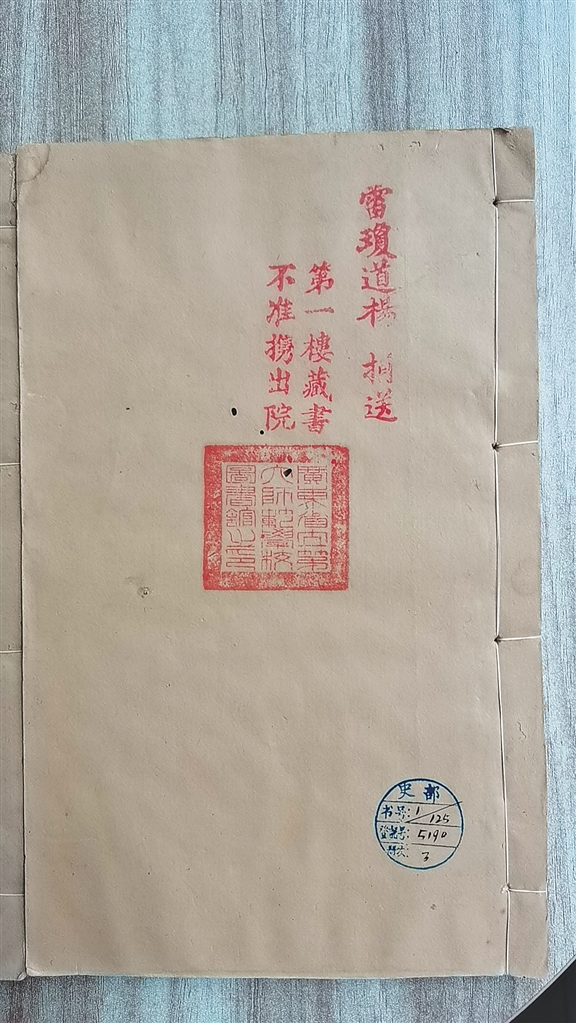 雷瓊道楊 捐送
第一樓藏書
不准攜出院
廣東省立第
六師範學校
圖書館之印
史部
书号: 1/125
登记号: 5190
册次: 3